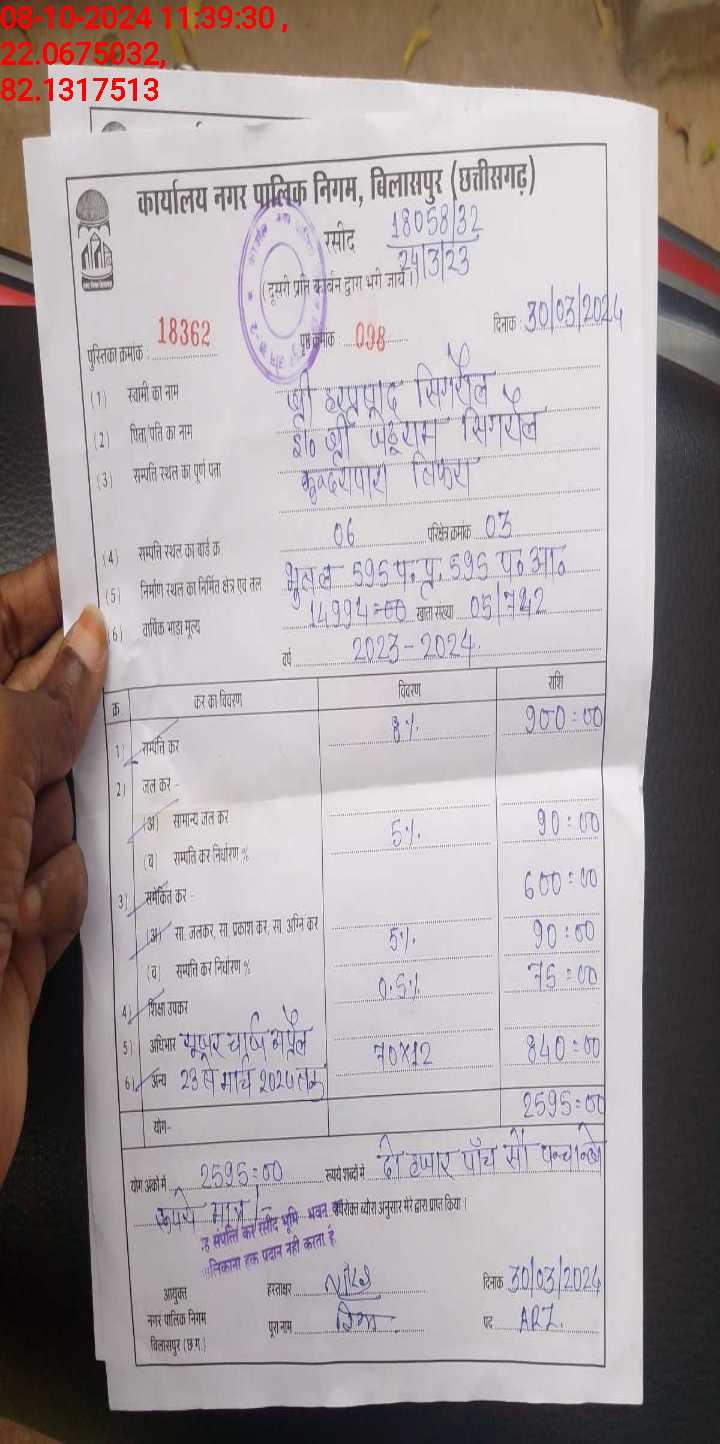 08-10-2024 11:39:30 ,
22.0675032,
82.1317513
कार्यालय नगर पालिक निगम, बिलासपुर (छत्तीसगढ़)
रसीद 18058/32
24/3/23
(दूसरी प्रति कार्बन द्वारा भरी जाये।)
पुस्तिका क्रमांक : 18362 पृष्ठ क्रमांक : 098 दिनांक : 30/03/2024
(1) स्वामी का नाम श्री हरप्रसाद सिंगरौल
(2) पिता/पति का नाम श्री सिंगरौल
(3) सम्पत्ति स्थल का पूर्ण पता कुन्दरापारा तिफरा
(4) सम्पत्ति स्थल का वार्ड क्र. 06 परिक्षेत्र क्रमांक 03
(5) निर्माण स्थल का निर्मित क्षेत्र एवं तल भूतल 595 प.प्र. 595 प० आ०
(6) वार्षिक भाड़ा मूल्य 14994=00 खाता संख्या 05/742
वर्ष 2023-2024.
क्र कर का विवरण विवरण राशि
1) सम्पत्ति कर 8% 900=00
2) जल कर -
(अ) सामान्य जल कर 90=00
(ब) सम्पत्ति कर निर्धारण % 5%
3) समेकित कर - 600=00
(अ) सा. जलकर, सा. प्रकाश कर, सा. अग्नि कर 5% 90=00
(ब) सम्पत्ति कर निर्धारण % 0.5% 75=00
4) शिक्षा उपकर
5) अधिभार यूजर चार्ज अप्रैल 70x12 840=00
6) अन्य 23 से मार्च 2024 तक
योग- 2595=00
योग अंको में 2595=00 रूपये शब्दों में दो हजार पाँच सौ पन्चान्बे
रूपये मात्र/- उपरोक्त ब्योरा अनुसार मेरे द्वारा प्राप्त किया।
संपत्ति कर रसीद भूमि भवन का
मालिकाना हक प्रदान नही करता है
आयुक्त हस्ताक्षर दिनांक 30/03/2024
नगर पालिक निगम पूरा नाम पद ARI.
बिलासपुर (छ.ग.)